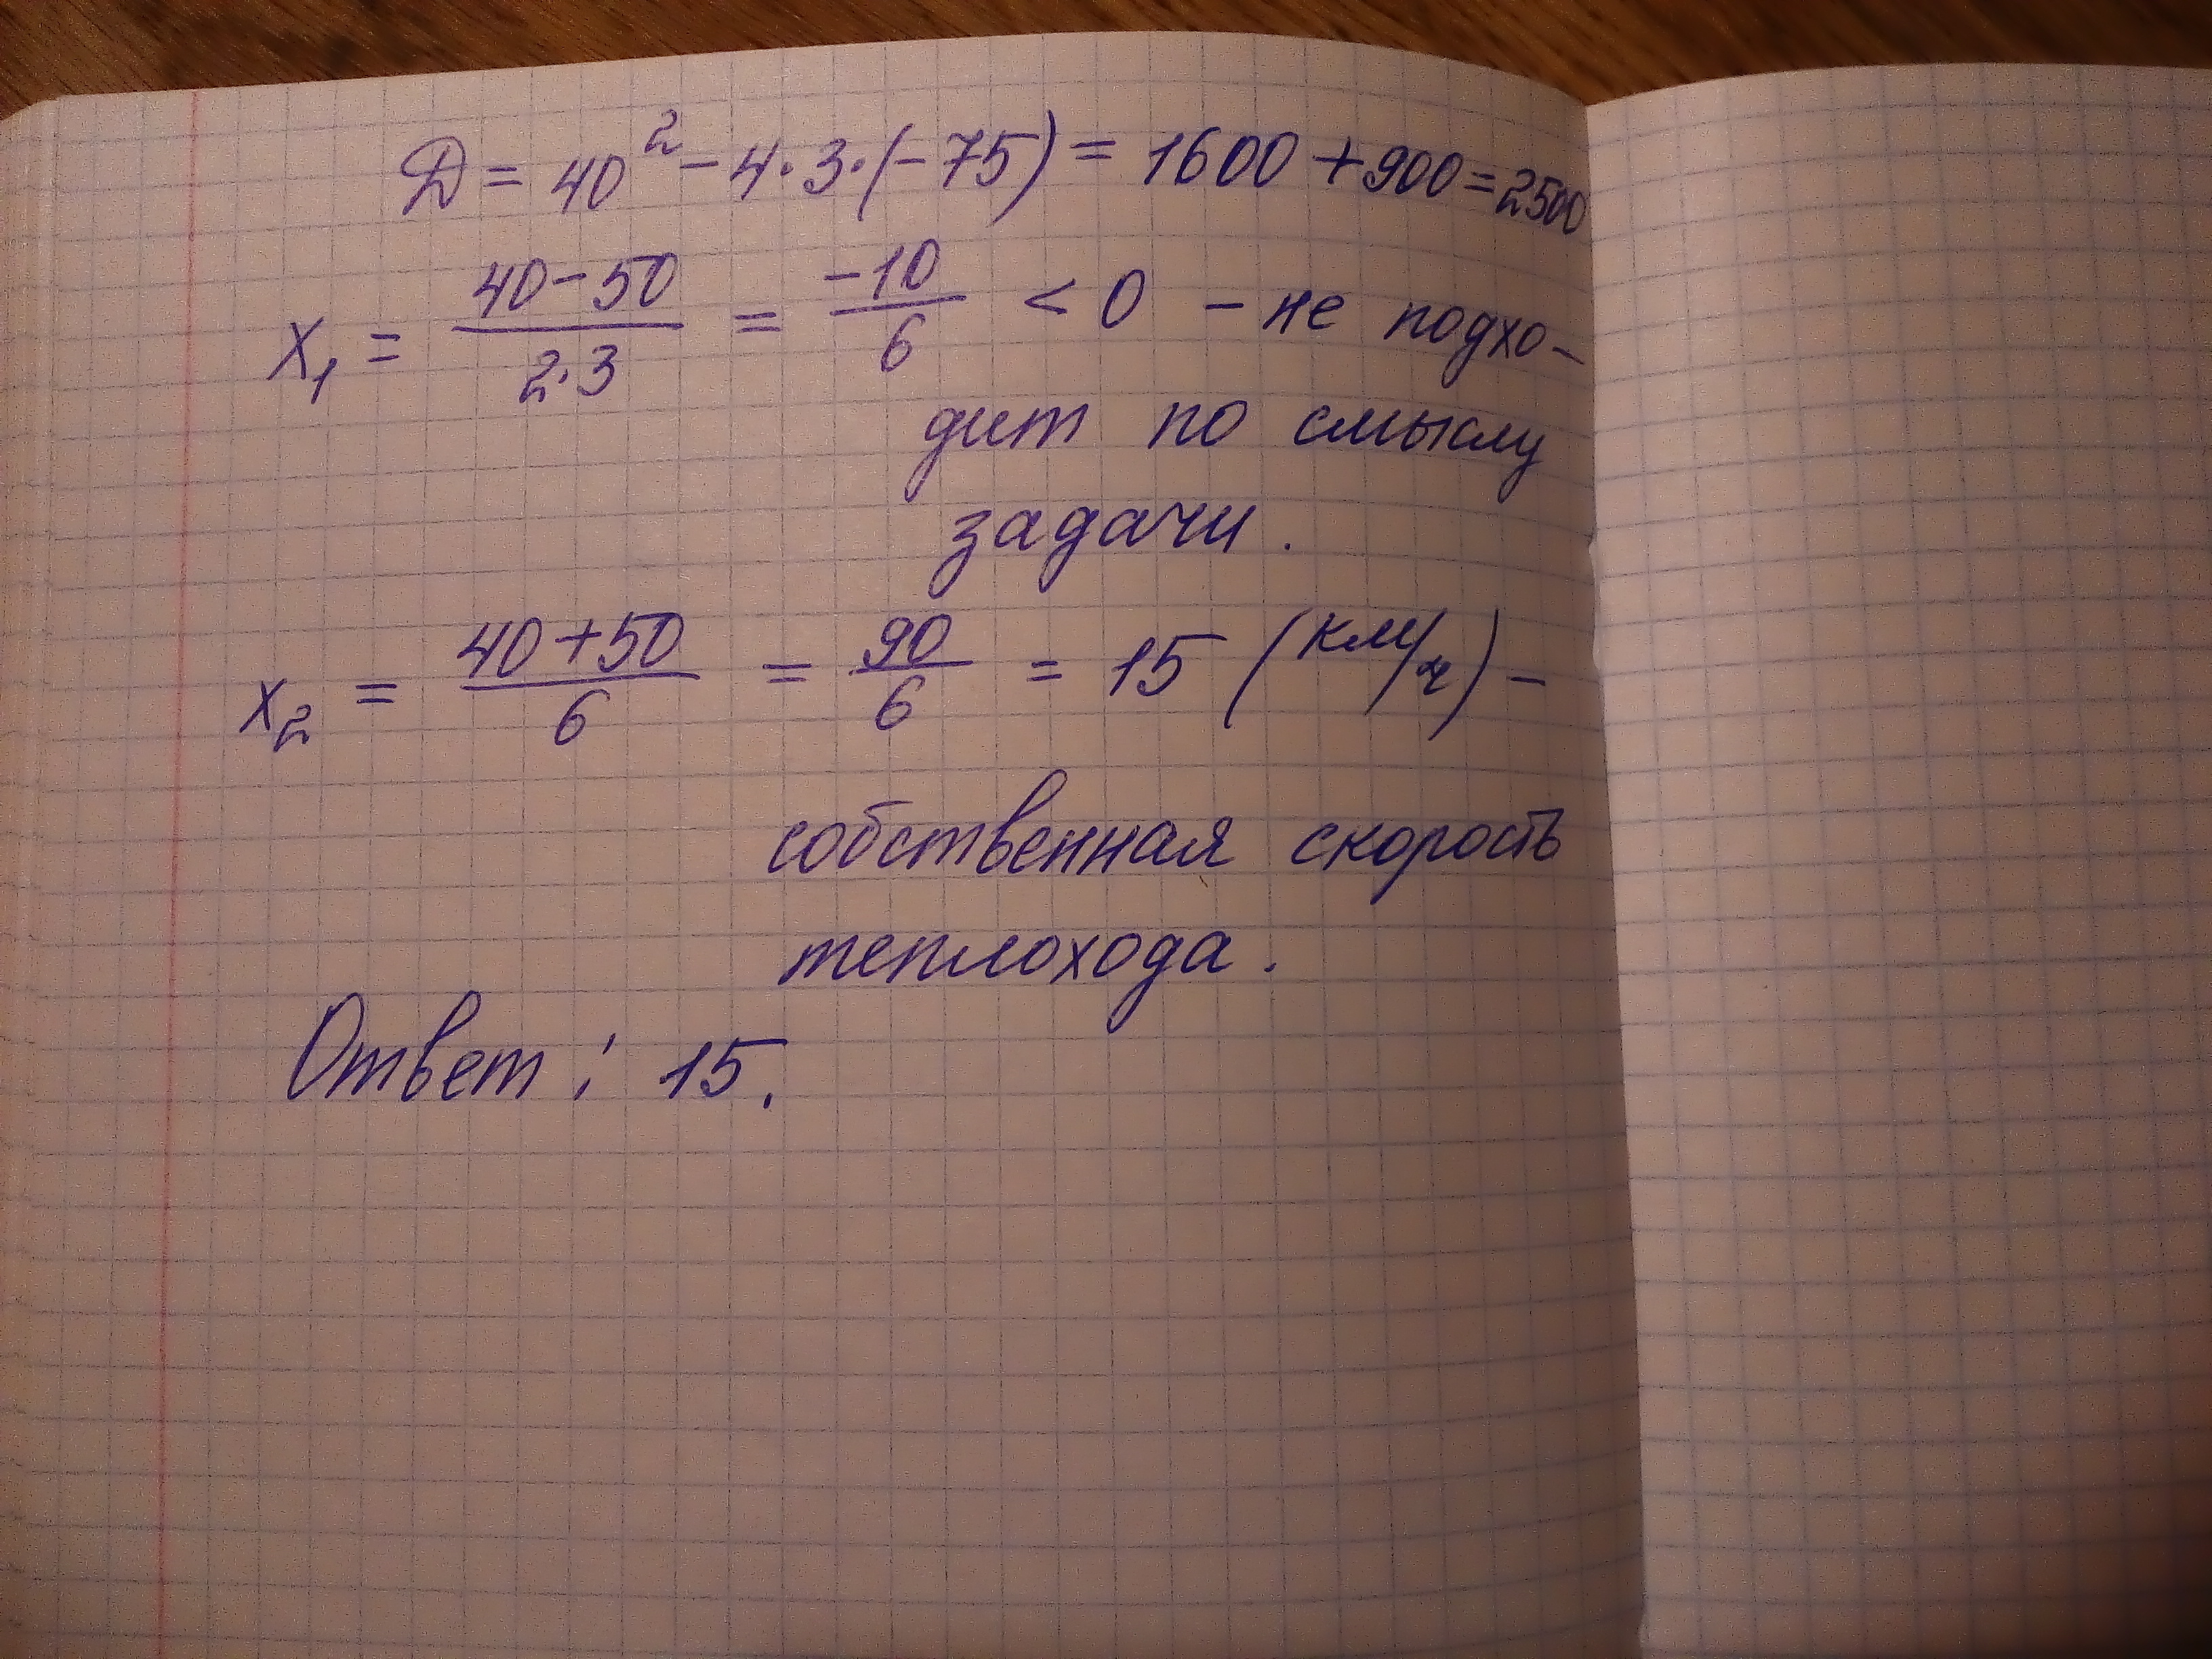 Д = 40² - 4·3·(-75) = 1600 + 900 = 2500
x₁ = (40-50)/(2·3) = (-10)/6 < 0 - не подхо-
дит по смыслу
задачи.
x₂ = (40+50)/6 = 90/6 = 15 (км/ч) -
собственная скорость
теплохода.
Ответ: 15.